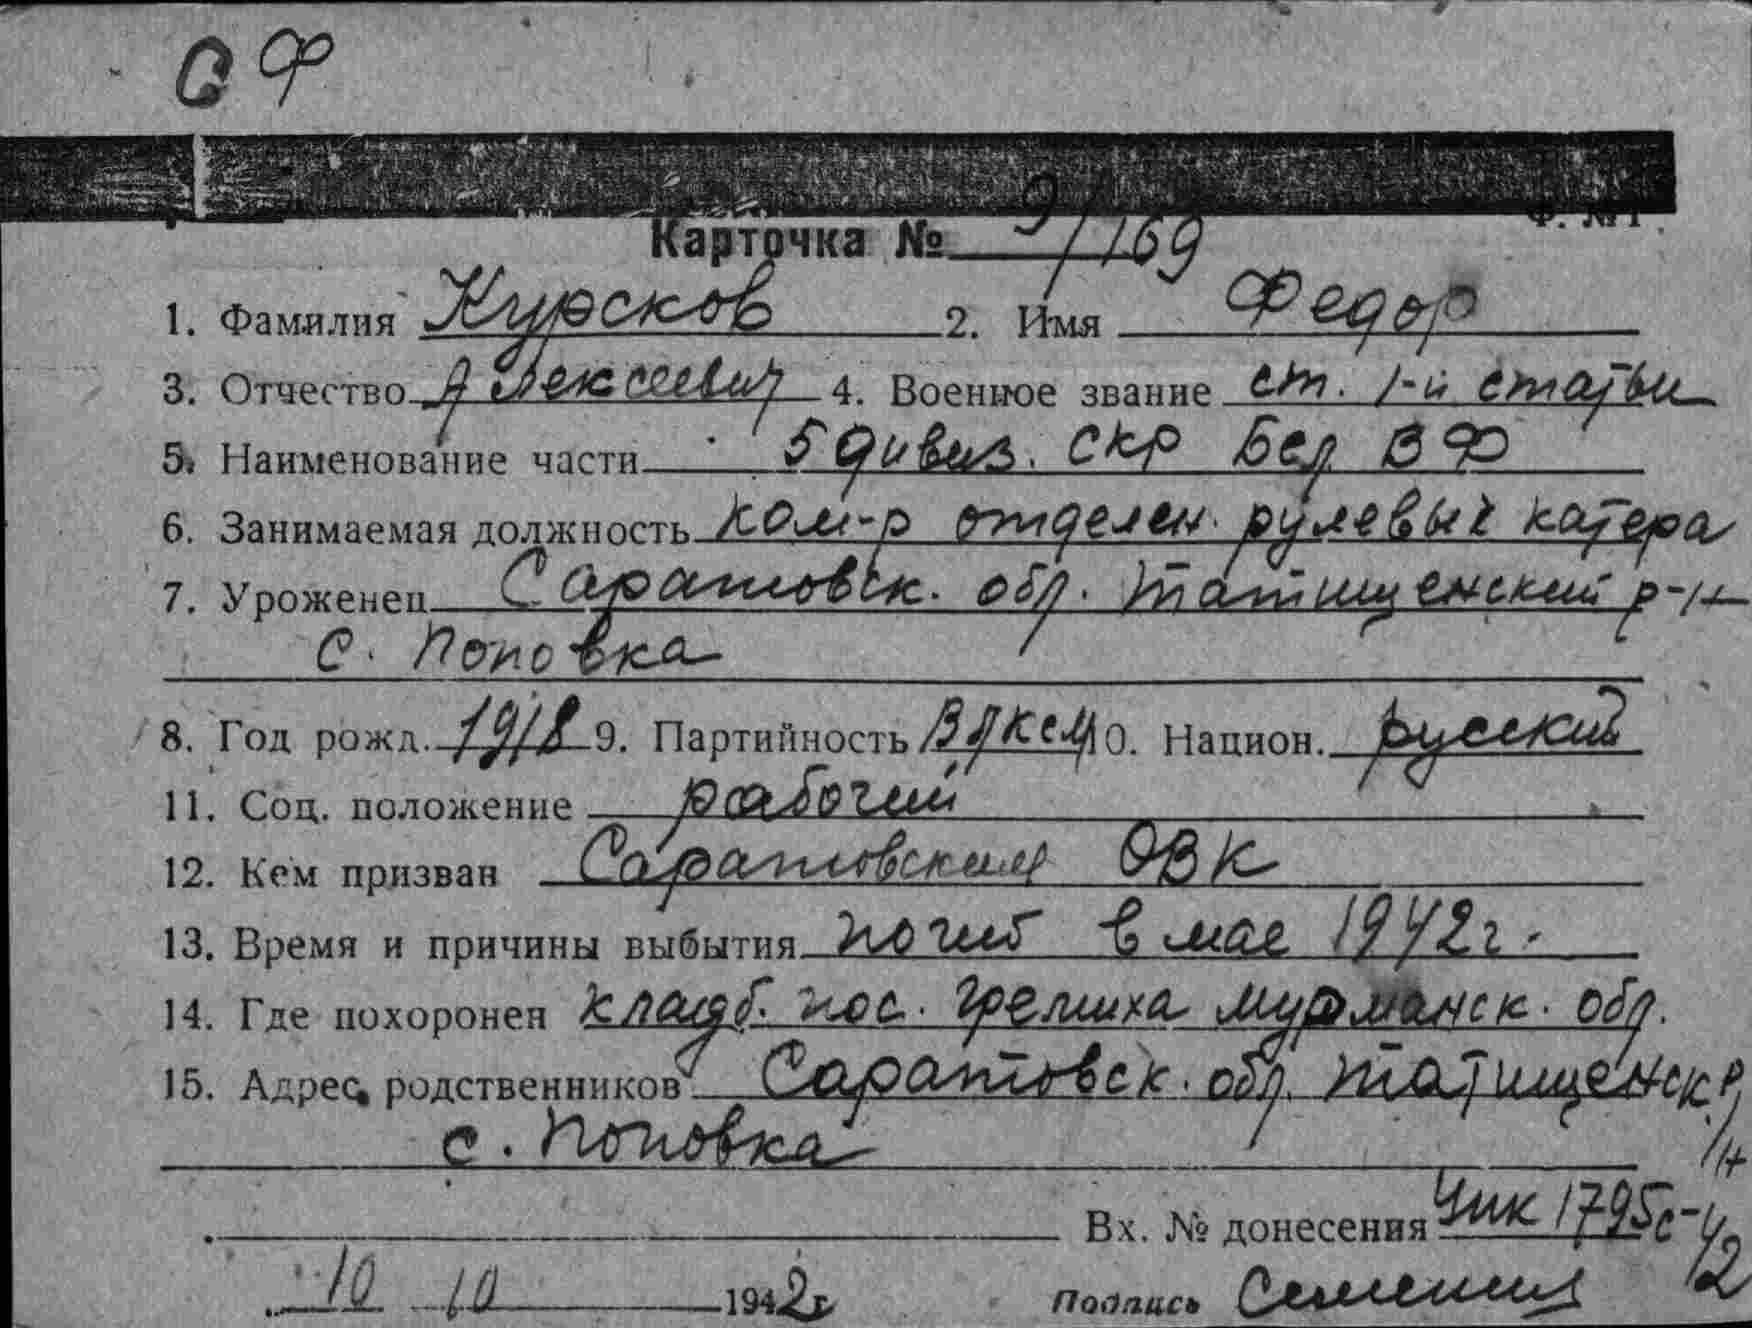 ОФ
Ф. №1
Карточка № 9/169
1. Фамилия Курсков 2. Имя Федор
3. Отчество Алексеевич 4. Военное звание ст. 1-й статьи
5. Наименование части 5 дивиз. СКР Бел ВФ
6. Занимаемая должность ком-р отделен. рулевых катера
7. Уроженец Саратовск. обл. Татищенский р-н
с. Поповка
8. Год рожд. 1918 9. Партийность ВЛКСМ 10. Национ. русский
11. Соц. положение рабочий
12. Кем призван Саратовским ОВК
13. Время и причины выбытия погиб в мае 1942 г.
14. Где похоронен кладб. пос. Гремиха Мурманск. обл.
15. Адрес родственников Саратовск. обл. Татищенск р/н
с. Поповка
Вх. № донесения 1795с-42
10 10 1942г Подпись